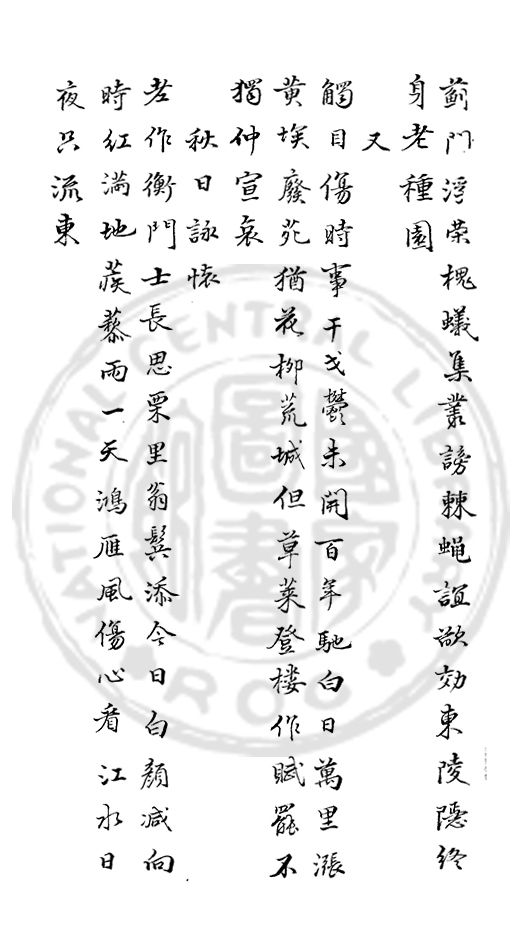 薊門浮荣槐蟻集叢謗棘蝇誼欲効東陵隱終
身老種園
又
觸目傷時事干戈鬱未開百年馳白日萬里漲
黄埃廢苑猶花柳荒城但草莱登楼作賦罷不
獨仲宣哀
秋日詠懐
老作衡門士長思栗里翁鬂添今日白顔减向
時紅满地蒺藜雨一天鴻雁風傷心看江水日
夜只流東
NATIONAL CENTRAL LIBRARY
ROC
國家圖書館